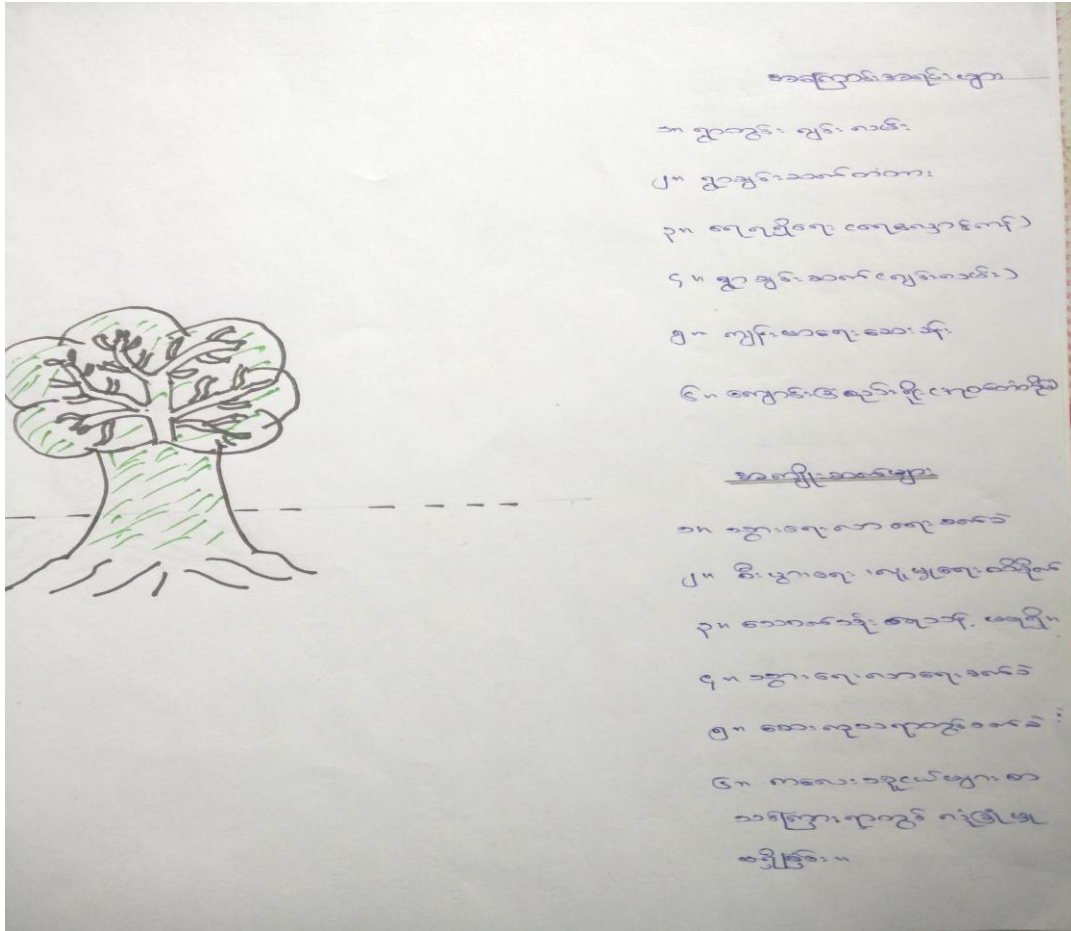 အကြောင်းအရင်းများ
၁။ ရွာတွင်း လျှင်း လမ်း
၂။ ရွာချင်းဆက်တံတား
၃။ ရေရရှိရေး (ရေလှောင်ကန်)
၄။ ရွာချင်းဆက် (လျှင်းလမ်း)
၅။ ကျန်းမာရေးဆေးခန်း
၆။ ကျောင်းခြံစည်းရိုး
အကျိုးဆက်များ
၁။ သွားရေးလာရေးခက်ခဲ
၂။ စီးပွားရေး ၊ လူမှုရေးထိခိုက်
၃။ သောက်သုံးရေသန့် မရရှိ။
၄။ သွားရေးလာရေးခက်ခဲ
၅။ ဆေးကုသရာတွင်ခက်ခဲ
၆။ ကလေးသူငယ်များ စာ
သင်ကြားရာတွင် လုံခြုံမှု
မရှိခြင်း။